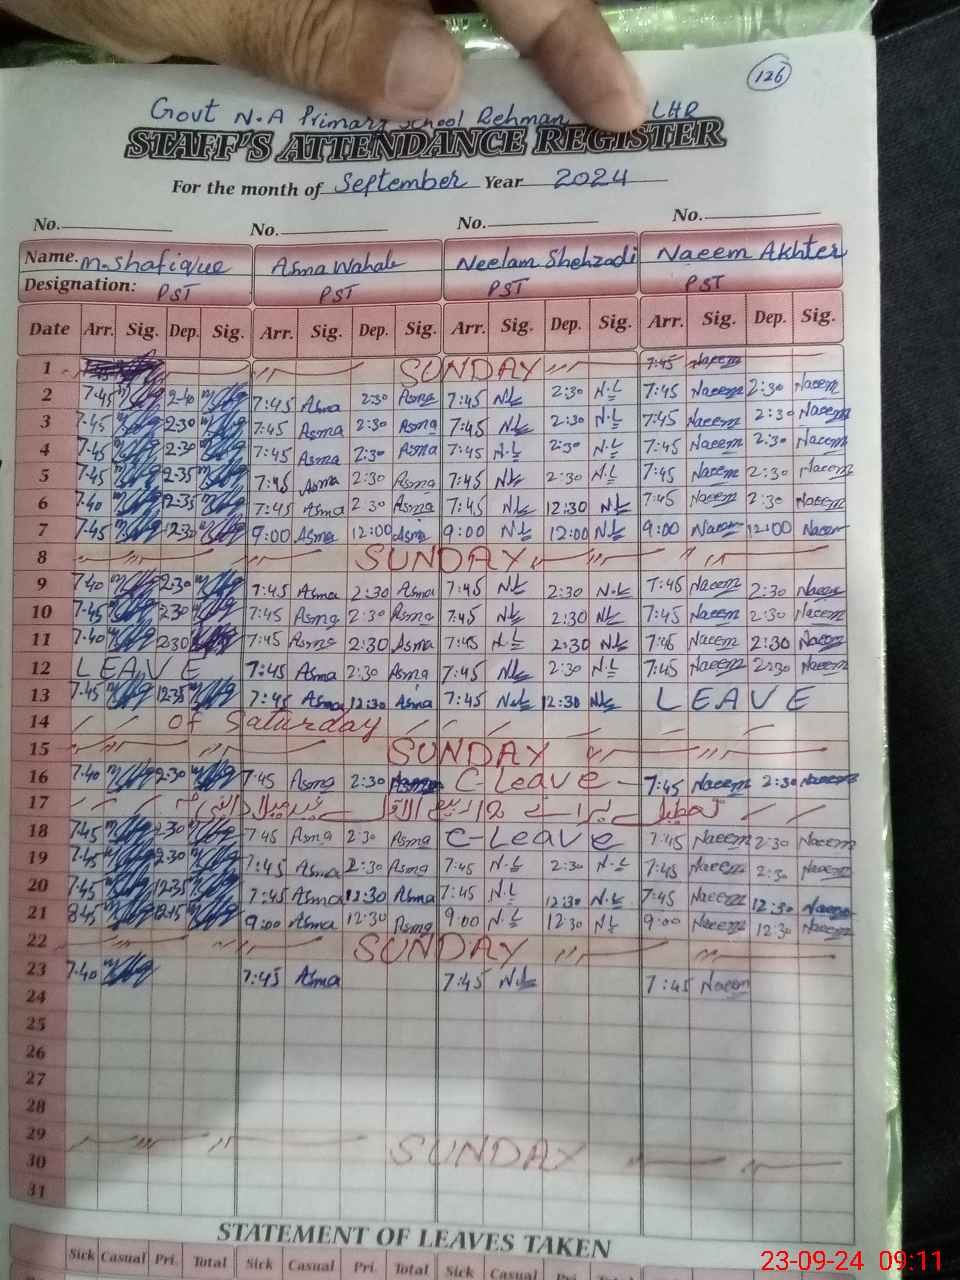 126
Govt N.A Primary School Rehman LHR
STAFF'S ATTENDANCE REGISTER
For the month of September Year 2024
No. No. No. No.
Name. M-Shafique Asma Wahab Neelam Shehzadi Naeem Akhter
Designation: PST PST PST PST
Date Arr. Sig. Dep. Sig. Arr. Sig. Dep. Sig. Arr. Sig. Dep. Sig. Arr. Sig. Dep. Sig.
1 SUNDAY 7:45 Naeem
2 7:45 2:40 7:45 Asma 2:30 Asma 7:45 N.L 2:30 N.L 7:45 Naeem 2:30 Naeem
3 7:45 2:30 7:45 Asma 2:30 Asma 7:45 N.L 2:30 N.L 7:45 Naeem 2:30 Naeem
4 7:45 2:30 7:45 Asma 2:30 Asma 7:45 N.L 2:30 N.L 7:45 Naeem 2:30 Naeem
5 7:45 2:35 7:45 Asma 2:30 Asma 7:45 N.L 2:30 N.L 7:45 Naeem 2:30 Naeem
6 7:40 12:35 7:45 Asma 2:30 Asma 7:45 N.L 12:30 N.L 7:45 Naeem 2:30 Naeem
7 7:45 12:30 9:00 Asma 12:00 Asma 9:00 N.L 12:00 N.L 9:00 Naeem 12:00 Naeem
8 SUNDAY
9 7:40 2:30 7:45 Asma 2:30 Asma 7:45 N.L 2:30 N.L 7:45 Naeem 2:30 Naeem
10 7:45 2:30 7:45 Asma 2:30 Asma 7:45 N.L 2:30 N.L 7:45 Naeem 2:30 Naeem
11 7:40 2:30 7:45 Asma 2:30 Asma 7:45 N.L 2:30 N.L 7:45 Naeem 2:30 Naeem
12 LEAVE 7:45 Asma 2:30 Asma 7:45 N.L 2:30 N.L 7:45 Naeem 2:30 Naeem
13 7:45 12:35 7:45 Asma 12:30 Asma 7:45 N.L 12:30 N.L LEAVE
14 of Saturday
15 SUNDAY
16 7:40 2:30 7:45 Asma 2:30 C-Leave 7:45 Naeem 2:30 Naeem
17 تعطیل 12 ربیع الاول عید میلاد النبی
18 7:45 2:30 7:45 Asma 2:30 Asma C-Leave 7:45 Naeem 2:30 Naeem
19 7:45 2:30 7:45 Asma 2:30 Asma 7:45 N.L 2:30 N.L 7:45 Naeem 2:30 Naeem
20 7:45 12:35 7:45 Asma 12:30 Asma 7:45 N.L 12:30 N.L 7:45 Naeem 12:30 Naeem
21 8:45 12:15 9:00 Asma 12:30 Asma 9:00 N.L 12:30 N.L 9:00 Naeem 12:30 Naeem
22 SUNDAY
23 7:40 7:45 Asma 7:45 N.L 7:45 Naeem
24
25
26
27
28
29 SUNDAY
30
31
STATEMENT OF LEAVES TAKEN
Sick Casual Pri. Total Sick Casual Pri. Total Sick Casual
23-09-24 09:11